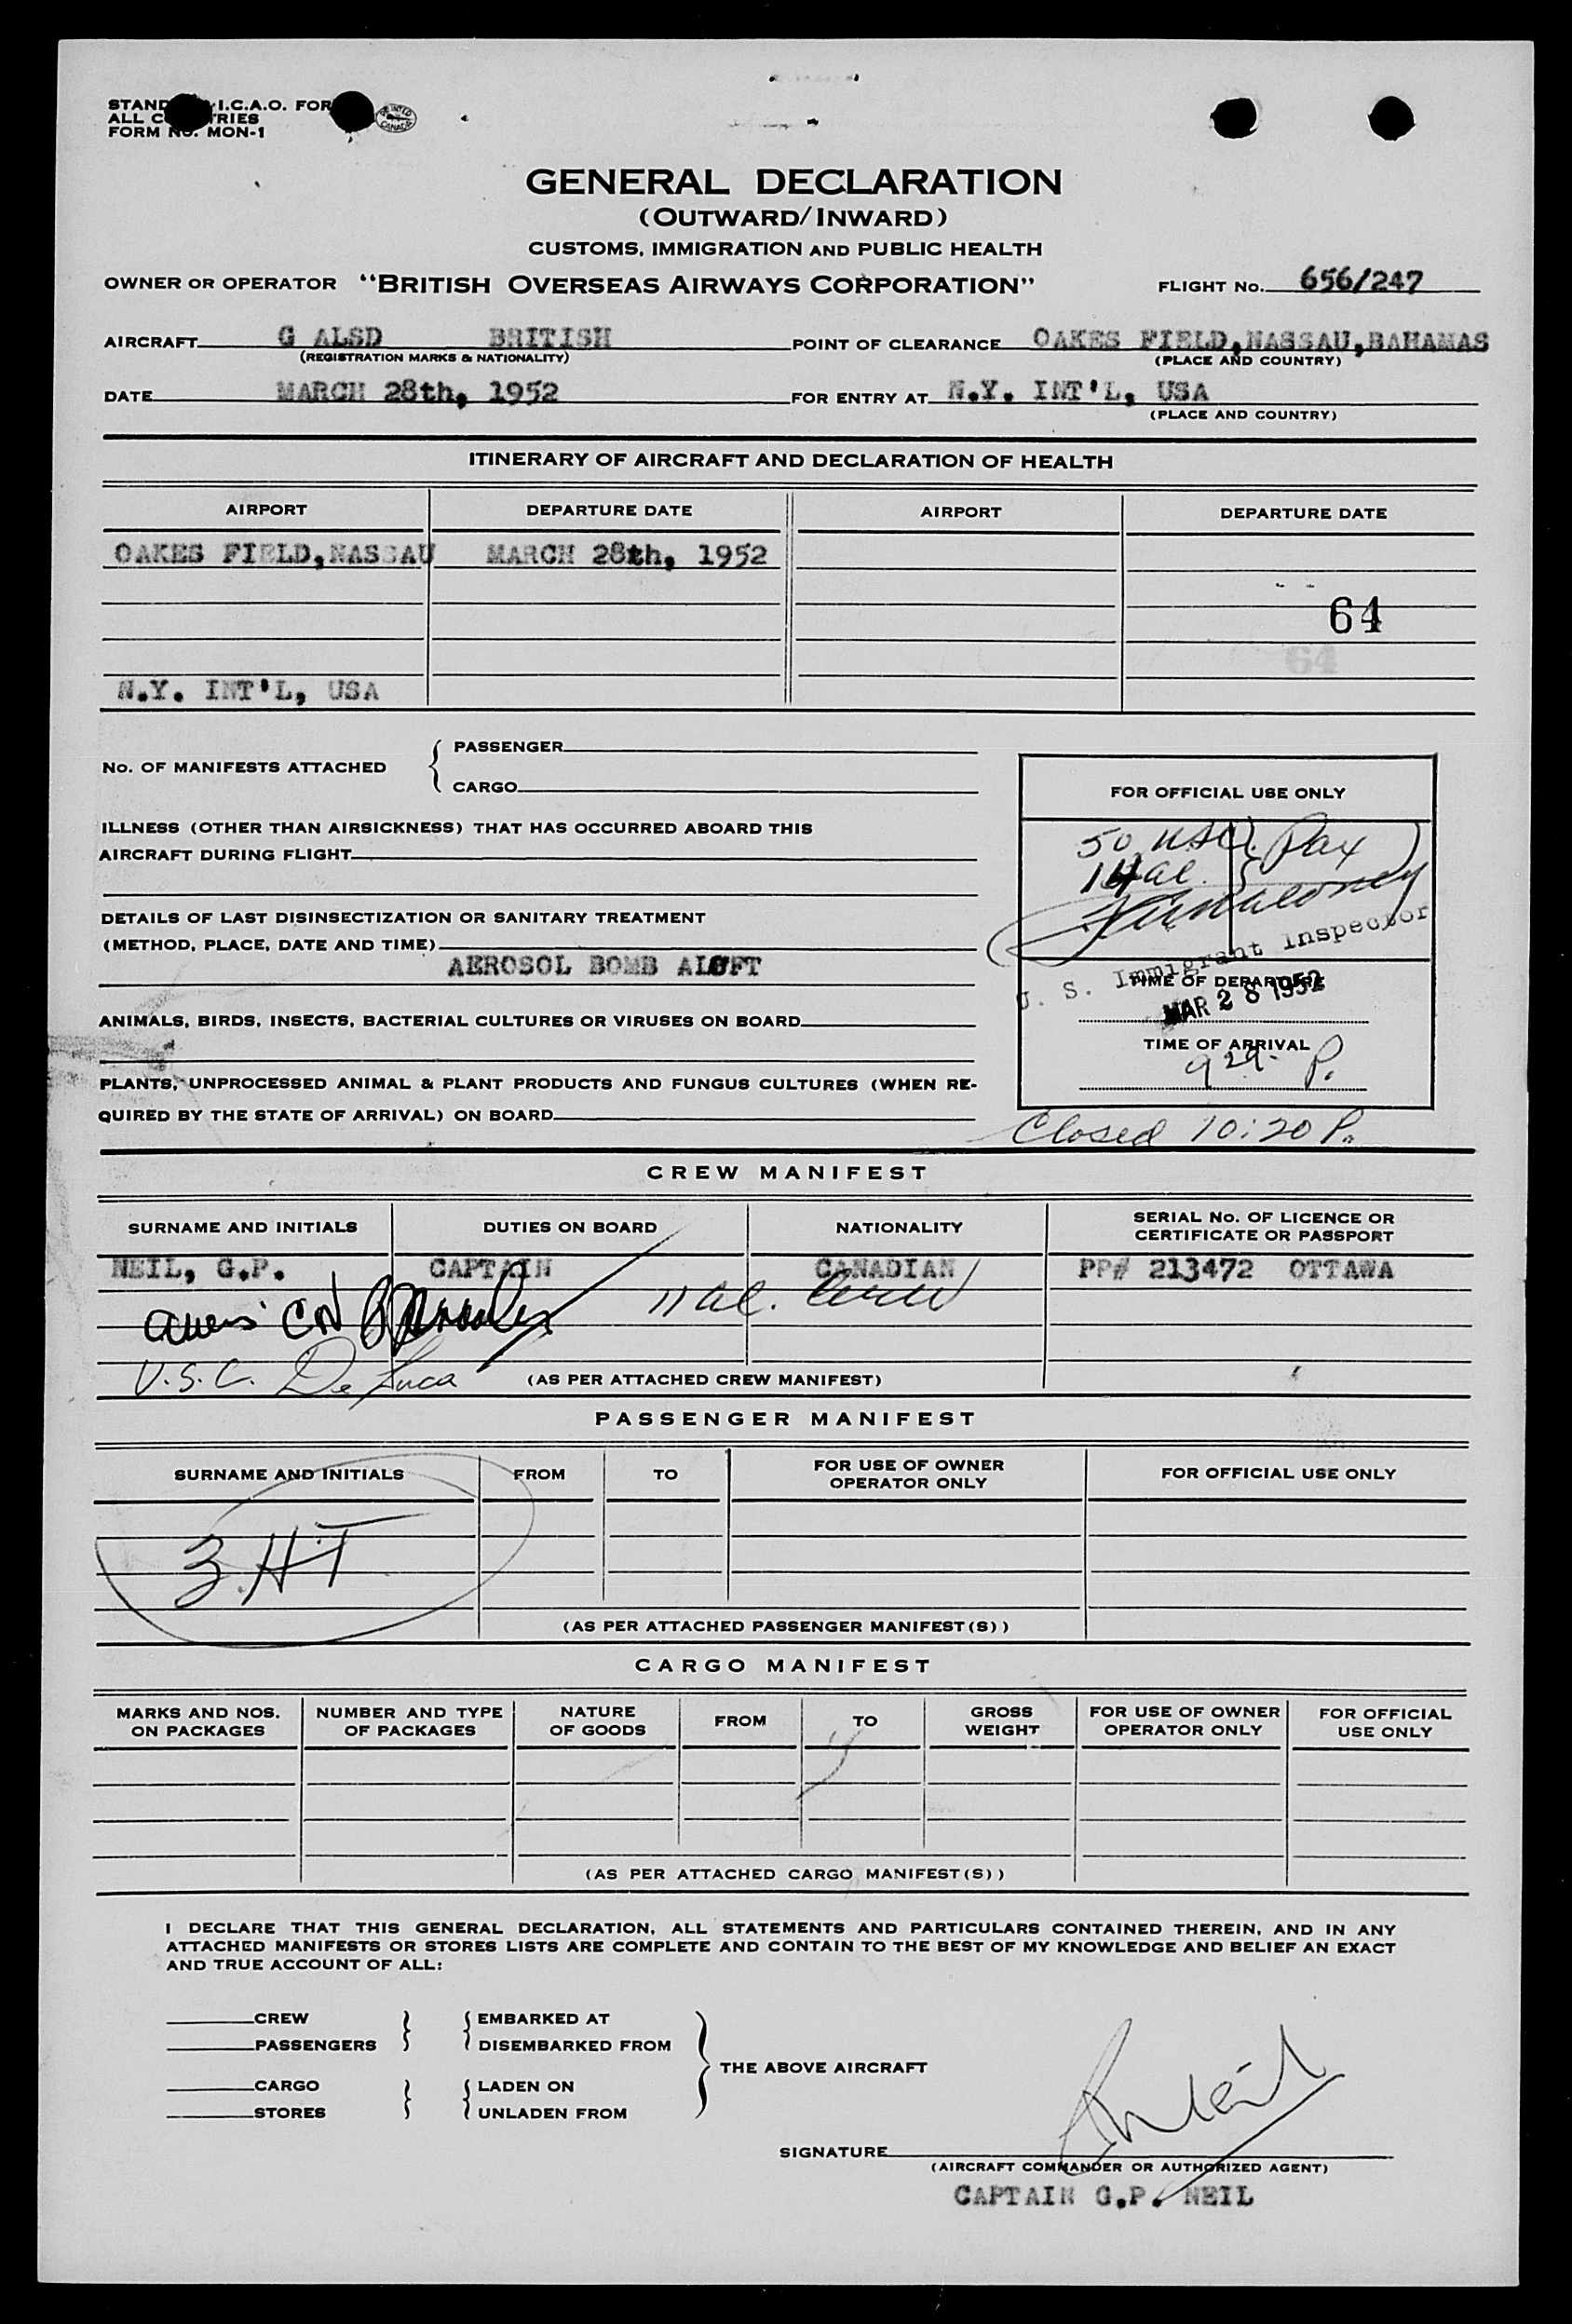 I.C.A.O. FOR
ALL
FORM NO. MON-1
PRINTED CANADA
GENERAL DECLARATION
(OUTWARD/INWARD)
CUSTOMS, IMMIGRATION AND PUBLIC HEALTH
OWNER OR OPERATOR "BRITISH OVERSEAS AIRWAYS CORPORATION" FLIGHT NO. 656/247
AIRCRAFT G ALSD BRITISH POINT OF CLEARANCE OAKES FIELD, NASSAU, BAHAMAS
(REGISTRATION MARKS & NATIONALITY) (PLACE AND COUNTRY)
DATE MARCH 28th, 1952 FOR ENTRY AT N.Y. INT'L, USA
(PLACE AND COUNTRY)
ITINERARY OF AIRCRAFT AND DECLARATION OF HEALTH
AIRPORT DEPARTURE DATE AIRPORT DEPARTURE DATE
OAKES FIELD, NASSAU MARCH 28th, 1952
64
64
N.Y. INT'L, USA
NO. OF MANIFESTS ATTACHED { PASSENGER
CARGO
FOR OFFICIAL USE ONLY
ILLNESS (OTHER THAN AIRSICKNESS) THAT HAS OCCURRED ABOARD THIS
AIRCRAFT DURING FLIGHT
50 Pax
14 al.
DETAILS OF LAST DISINSECTIZATION OR SANITARY TREATMENT
(METHOD, PLACE, DATE AND TIME)
AEROSOL BOMB ALOFT
U. S. Immigrant Inspector
TIME OF DEPARTURE
MAR 28 1952
ANIMALS, BIRDS, INSECTS, BACTERIAL CULTURES OR VIRUSES ON BOARD
TIME OF ARRIVAL
9 29 P.
PLANTS, UNPROCESSED ANIMAL & PLANT PRODUCTS AND FUNGUS CULTURES (WHEN RE-
QUIRED BY THE STATE OF ARRIVAL) ON BOARD
Closed 10:20 P.
CREW MANIFEST
SURNAME AND INITIALS DUTIES ON BOARD NATIONALITY SERIAL NO. OF LICENCE OR
CERTIFICATE OR PASSPORT
NEIL, G.P. CAPTAIN CANADIAN PP# 213472 OTTAWA
11 al. Crew
U.S.C. De Luca (AS PER ATTACHED CREW MANIFEST)
PASSENGER MANIFEST
SURNAME AND INITIALS FROM TO FOR USE OF OWNER
OPERATOR ONLY FOR OFFICIAL USE ONLY
3 HT
(AS PER ATTACHED PASSENGER MANIFEST(S))
CARGO MANIFEST
MARKS AND NOS.
ON PACKAGES NUMBER AND TYPE
OF PACKAGES NATURE
OF GOODS FROM TO GROSS
WEIGHT FOR USE OF OWNER
OPERATOR ONLY FOR OFFICIAL
USE ONLY
(AS PER ATTACHED CARGO MANIFEST(S))
I DECLARE THAT THIS GENERAL DECLARATION, ALL STATEMENTS AND PARTICULARS CONTAINED THEREIN, AND IN ANY
ATTACHED MANIFESTS OR STORES LISTS ARE COMPLETE AND CONTAIN TO THE BEST OF MY KNOWLEDGE AND BELIEF AN EXACT
AND TRUE ACCOUNT OF ALL:
CREW EMBARKED AT
PASSENGERS DISEMBARKED FROM
THE ABOVE AIRCRAFT
CARGO LADEN ON
STORES UNLADEN FROM
SIGNATURE
(AIRCRAFT COMMANDER OR AUTHORIZED AGENT)
CAPTAIN G.P. NEIL